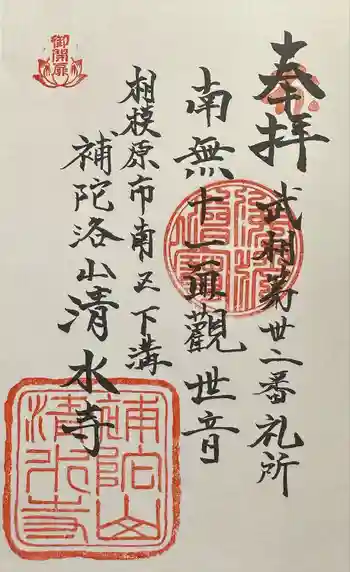 奉拝
武相第廿二番礼所
南無十一面觀世音
相模原市南区下溝
補陀洛山清水寺
御開扉
補陀山
清水寺